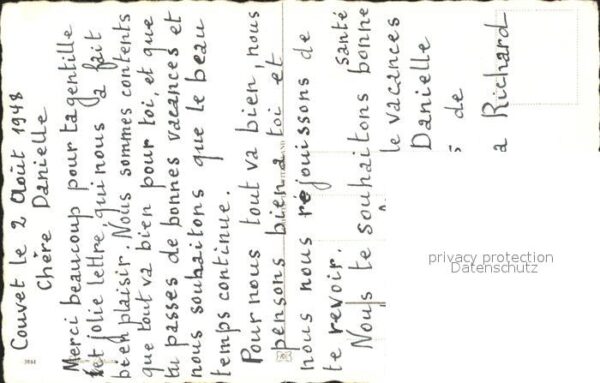 Couvet le 2 Août 1948
Chère Danielle
Merci beaucoup pour ta gentille
et jolie lettre, qui nous a fait
bien plaisir. Nous sommes contents
que tout va bien pour toi, et que
tu passes de bonnes vacances et
nous souhaitons que le beau
temps continue.
Pour nous tout va bien, nous
pensons bien a toi et
nous nous réjouissons de
te revoir.
santé
Nous te souhaitons bonne
le vacances
Danielle
de
a Richard
privacy protection
Datenschutz